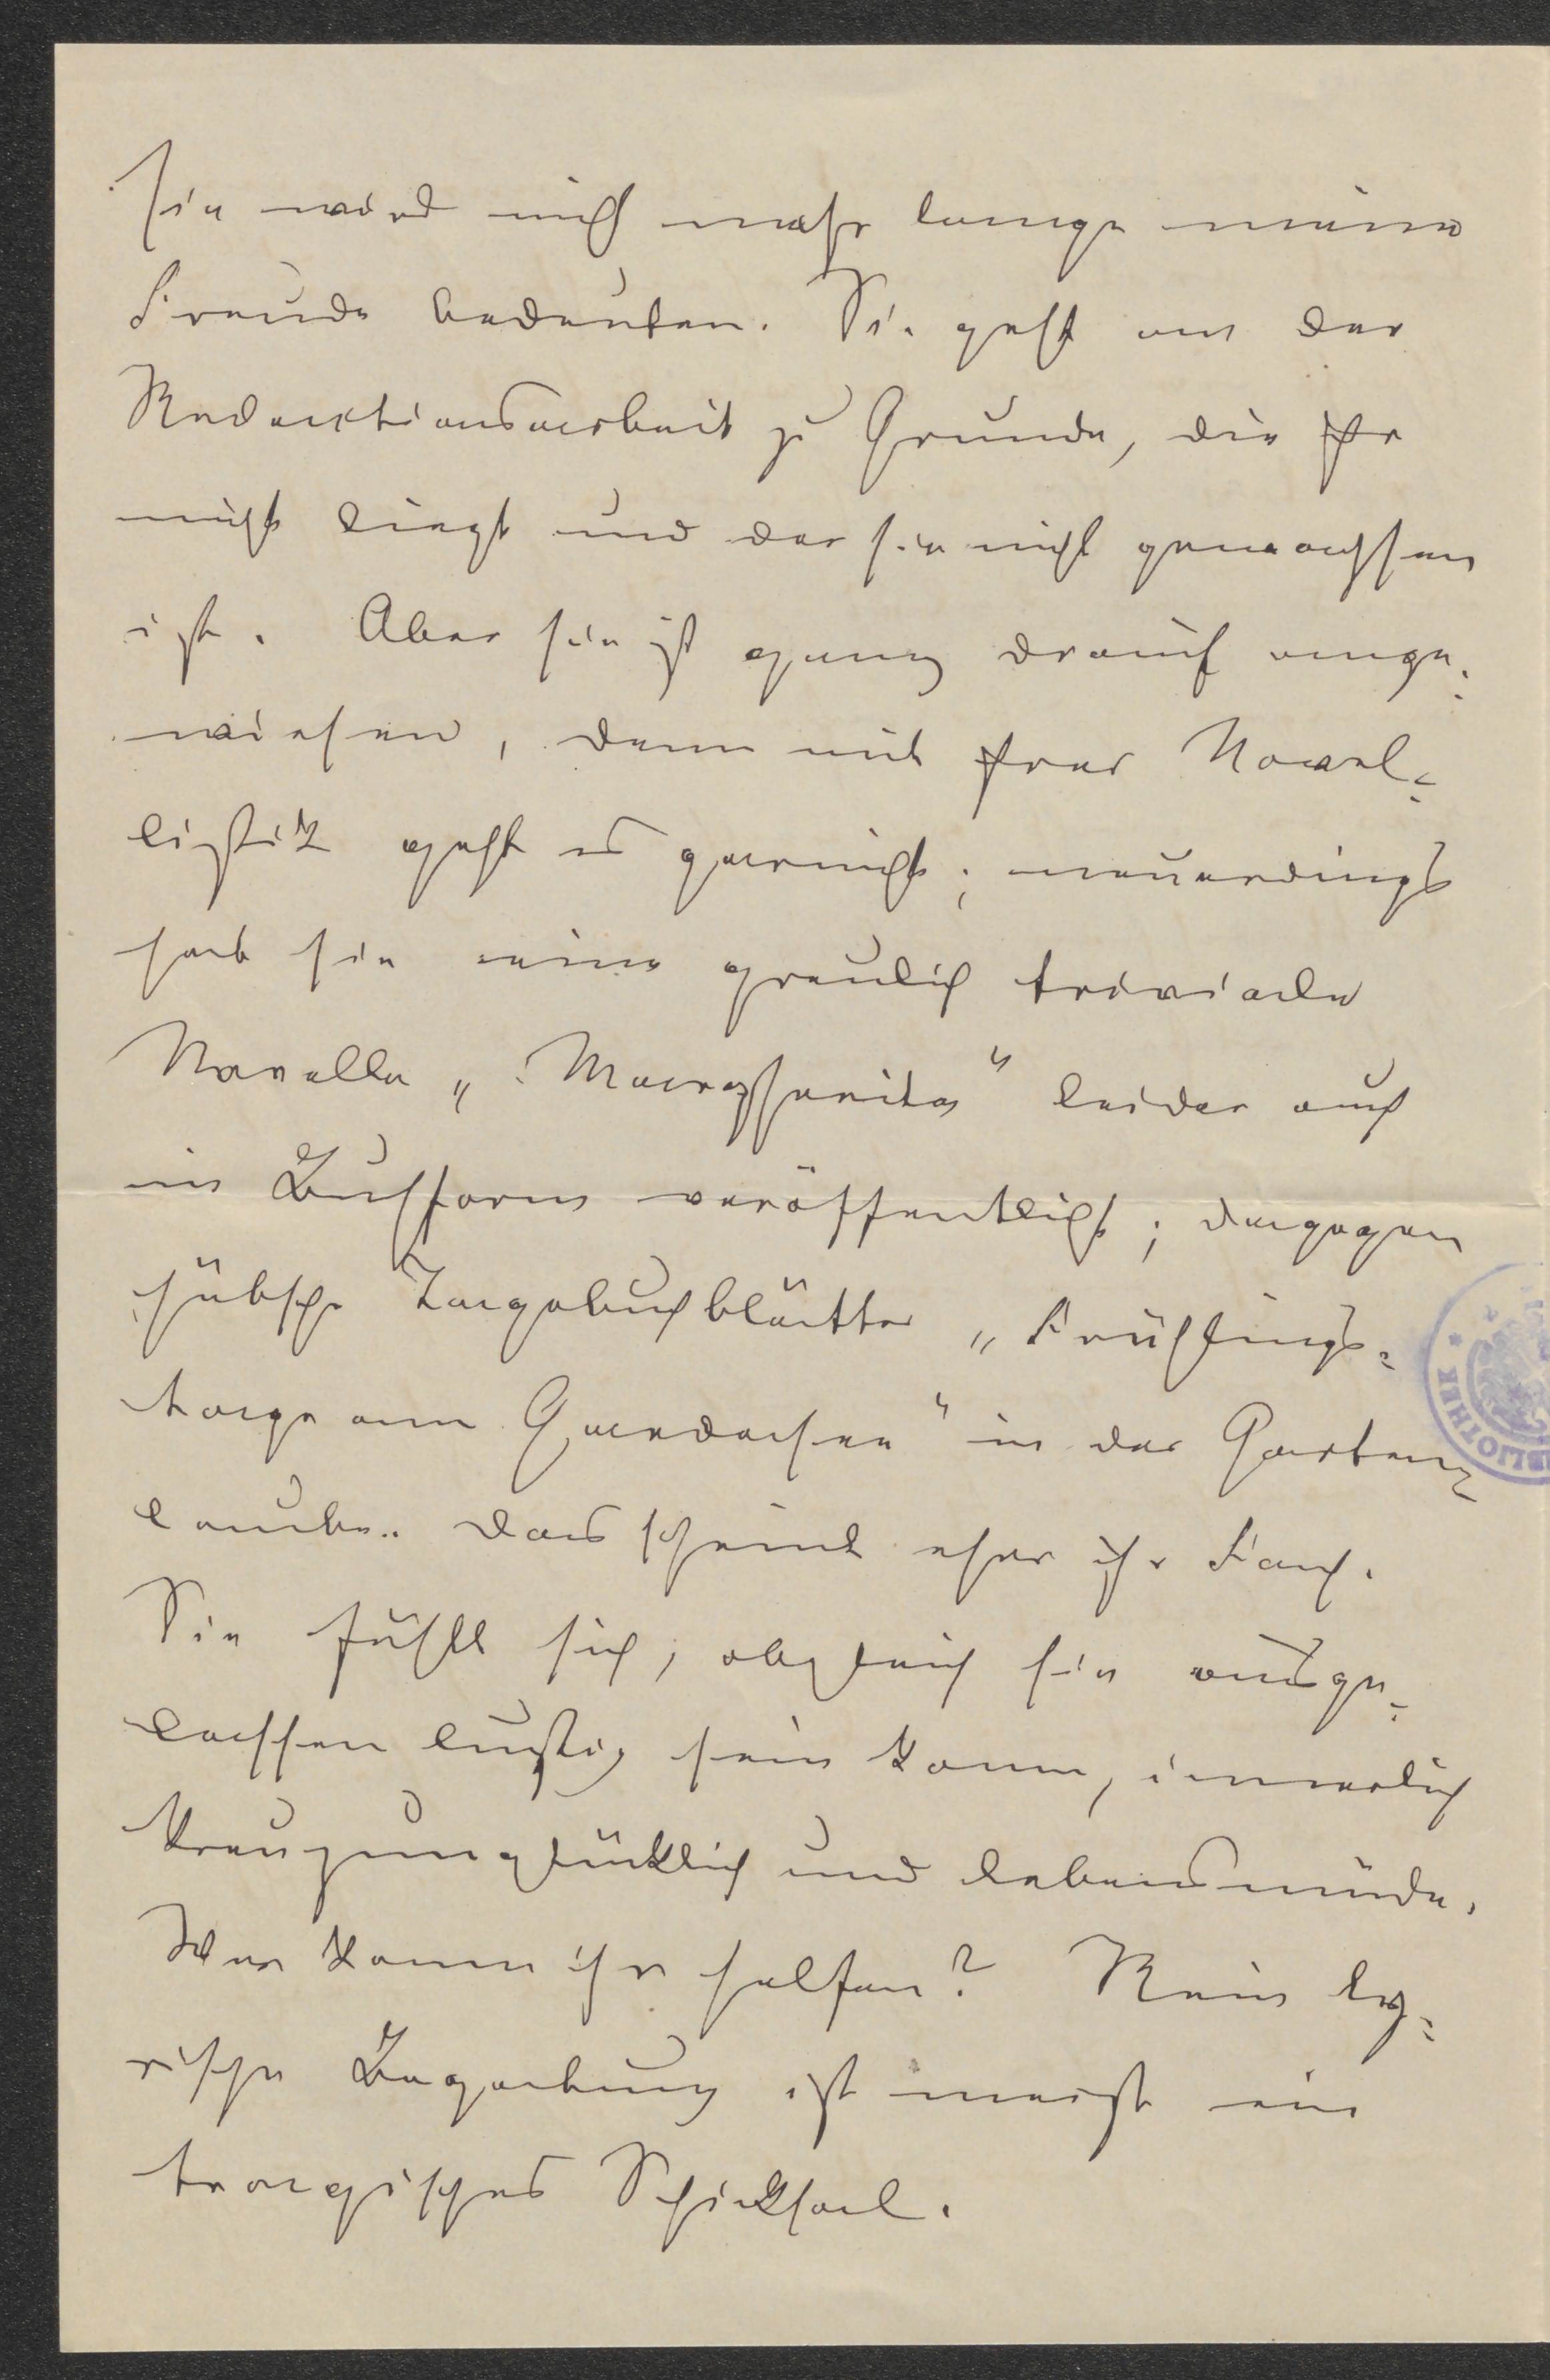 sie wird nicht mehr lange meine
Freude bedeuten. Sie geht an der
Redactionsarbeit zu Grunde, die ihr
nicht liegt und der sie nicht gewachsen
ist. Aber sie ist ganz drauf ange-
wiesen, denn mit ihrer Novel-
listik geht es garnicht; neuerdings
hat sie eine greulich triviale
Novelle „Margherita“ leider auch
in Buchform veröffentlicht; dagegen
hübsche Tagebuchblätter „Frühlings-
tage am Gardasee“ in der Garten-
laube. Das scheint eher ihr Fach.
Sie fühlt sich, obgleich sie ausge-
lassen lustig sein kann, innerlich
kreuzunglücklich und lebensmüde.
Wer kann ihr helfen? Rein ly-
rische Begabung ist meist ein
tragisches Schicksal.
BIBLIOTHEK